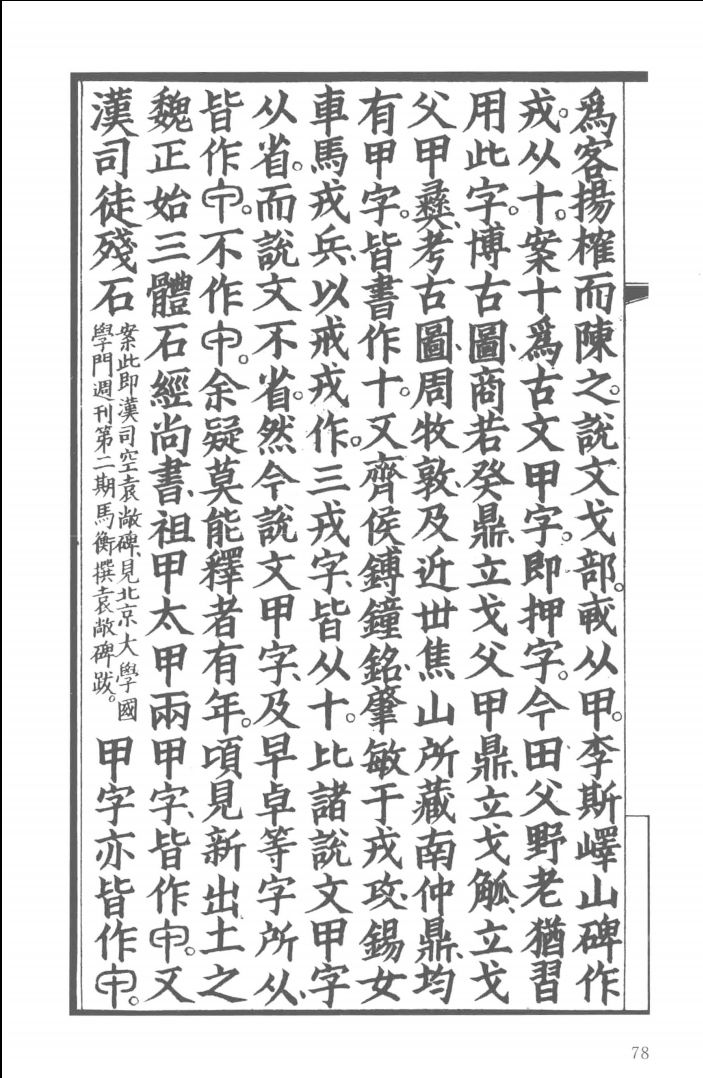 爲客揚榷而陳之。說文戈部。从甲。李斯嶧山碑作
戎从十。案十爲古文甲字。即押字。今田父野老猶習
用此字。博古圖、商若癸鼎、立戈父甲鼎、立戈觚、立戈
父甲彝、考古圖、周牧敦、及近世焦山所藏南仲鼎、均
有甲字。皆書作十。又齊侯鎛鐘銘、肇敏于戎攻、錫女
車馬戎兵、以戒戎作。三戎字、皆从十。比諸說文甲字
从省。而說文不省。然今說文甲字、及早卓等字所从、
皆作。不作。余疑莫能釋者有年。頃見新出土之
魏正始三體石經尚書、祖甲太甲兩甲字、皆作。又
漢司徒殘石
案此即漢司空袁敞碑、見北京大學國
學門週刊第二期馬衡撰袁敞碑跋。
甲字亦皆作。
78